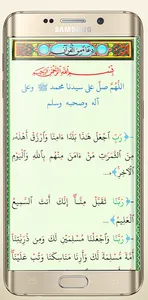 SAMSUNG
دعاء من القرآن
بسم الله الرحمن الرحيم
اللَّهُمَّ صلِّ على سيدنا محمد ﷺ وعلى
آله وصحبه وسلم
رَبِّ ٱجْعَلْ هَٰذَا بَلَدًا ءَامِنًا وَٱرْزُقْ أَهْلَهُۥ
مِنَ ٱلثَّمَرَٰتِ مَنْ ءَامَنَ مِنْهُم بِٱللَّهِ وَٱلْيَوْمِ
ٱلْءَاخِرِ
رَبَّنَا تَقَبَّلْ مِنَّآ إِنَّكَ أَنتَ ٱلسَّمِيعُ
ٱلْعَلِيمُ
رَبَّنَا وَٱجْعَلْنَا مُسْلِمَيْنِ لَكَ وَمِن ذُرِّيَّتِنَآ
أُمَّةً مُّسْلِمَةً لَّكَ وَأَرِنَا مَنَاسِكَنَا وَتُبْ عَلَيْنَآ